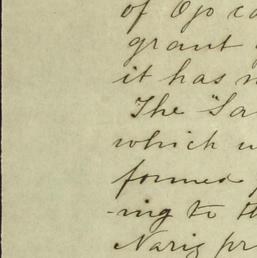 of Ojo ca
grant
it has n
The "Sa
which w
formed
-ing to th
Nariz pr